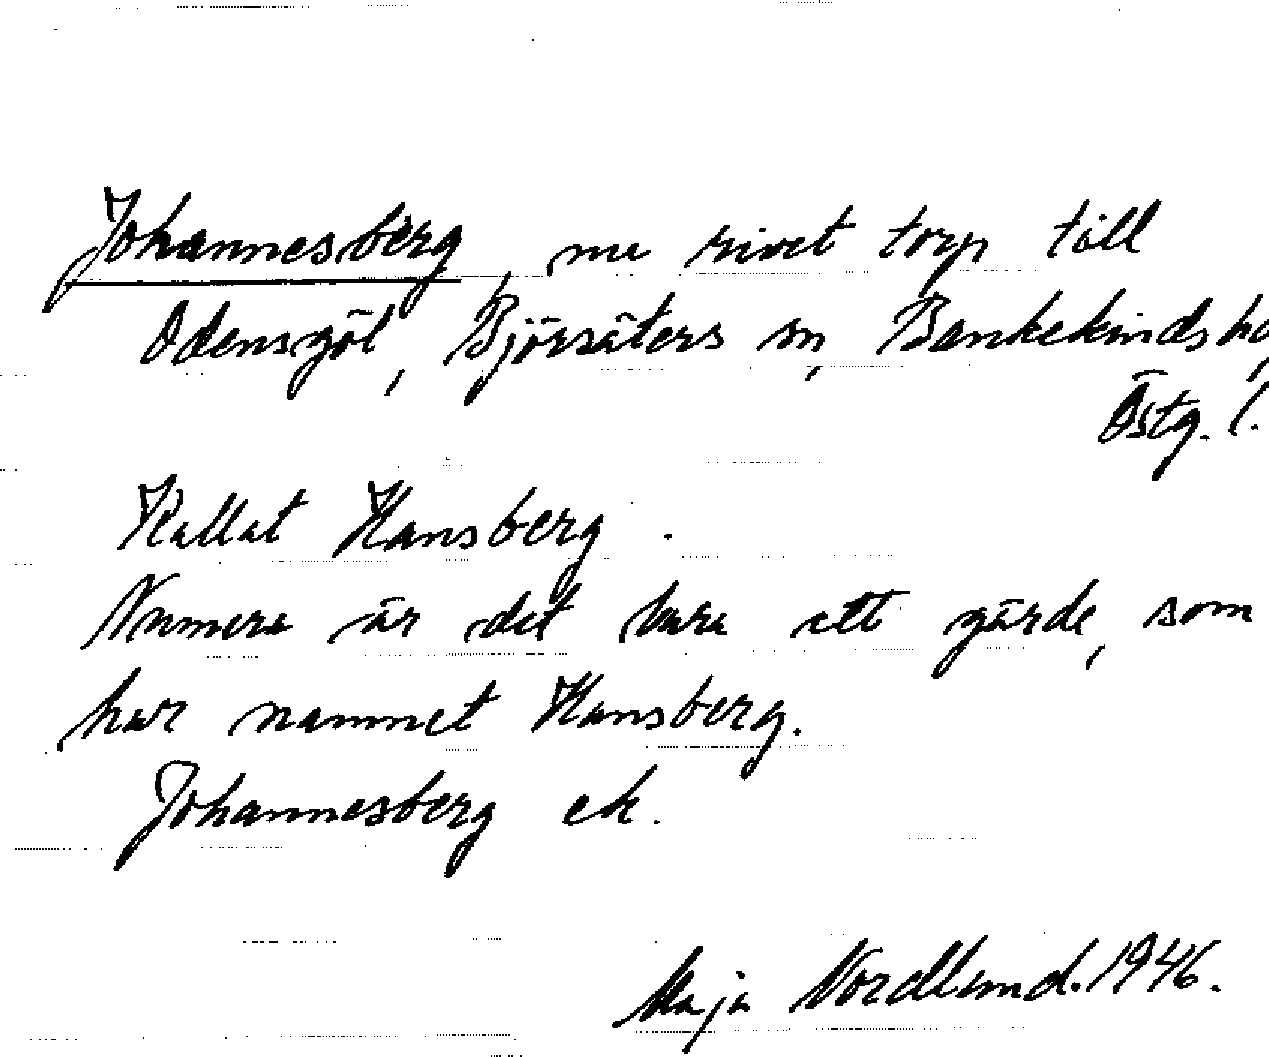 Johannesberg, nu rivet torp till
Odensgöl, Björsäters sn, Bankekinds hd,
Östg. l.
Kallat Hansberg.
Numera är det bara ett gärde, som
har namnet Hansberg.
Johannesberg ek.
Maja Nordlund. 1946.